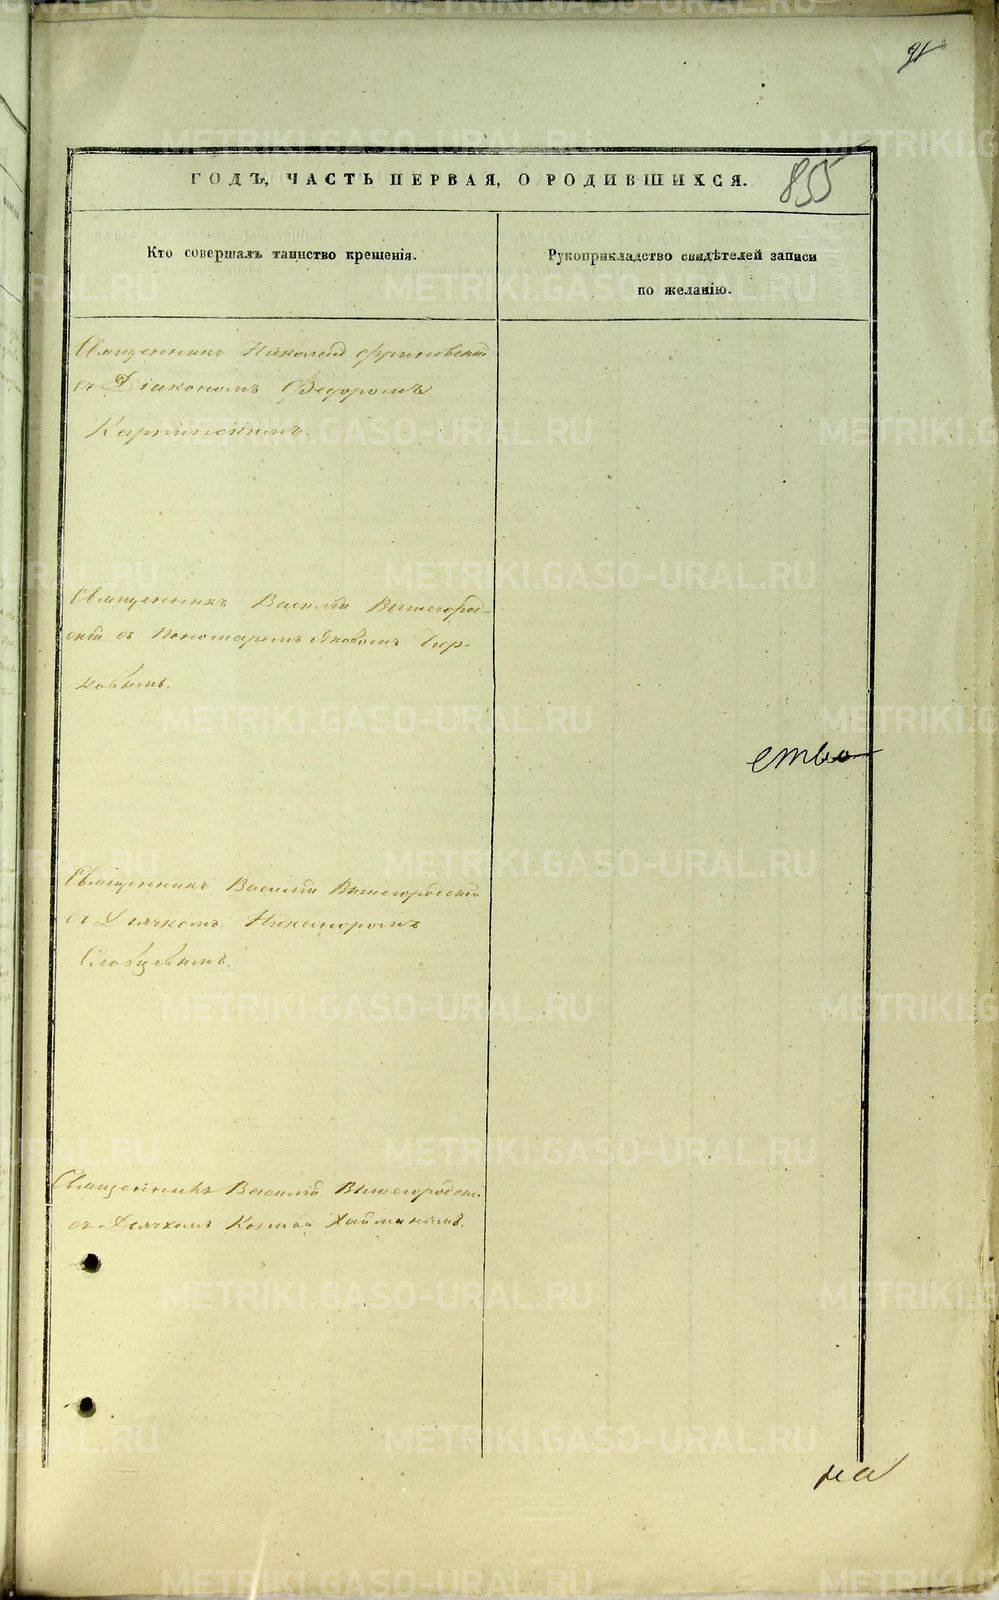 91
ГОДЪ, ЧАСТЬ ПЕРВАЯ, О РОДИВШИХСЯ.
855
Кто совершалъ таинство крещенія.
Рукоприкладство свидѣтелей записи
по желанію.
Священникъ Николай
съ Діакономъ Федоромъ
Карпинскимъ.
Священникъ Василій Вышегород-
скій съ Пономаремъ Яковомъ
ковымъ.
ство
Священникъ Василій Вышегородскій
съ Дьячкомъ Никаноромъ
Словцевымъ.
Священникъ Василій Вышегородскій
съ Дьячкомъ Козмой
на
METRIKI.GASO-URAL.RU